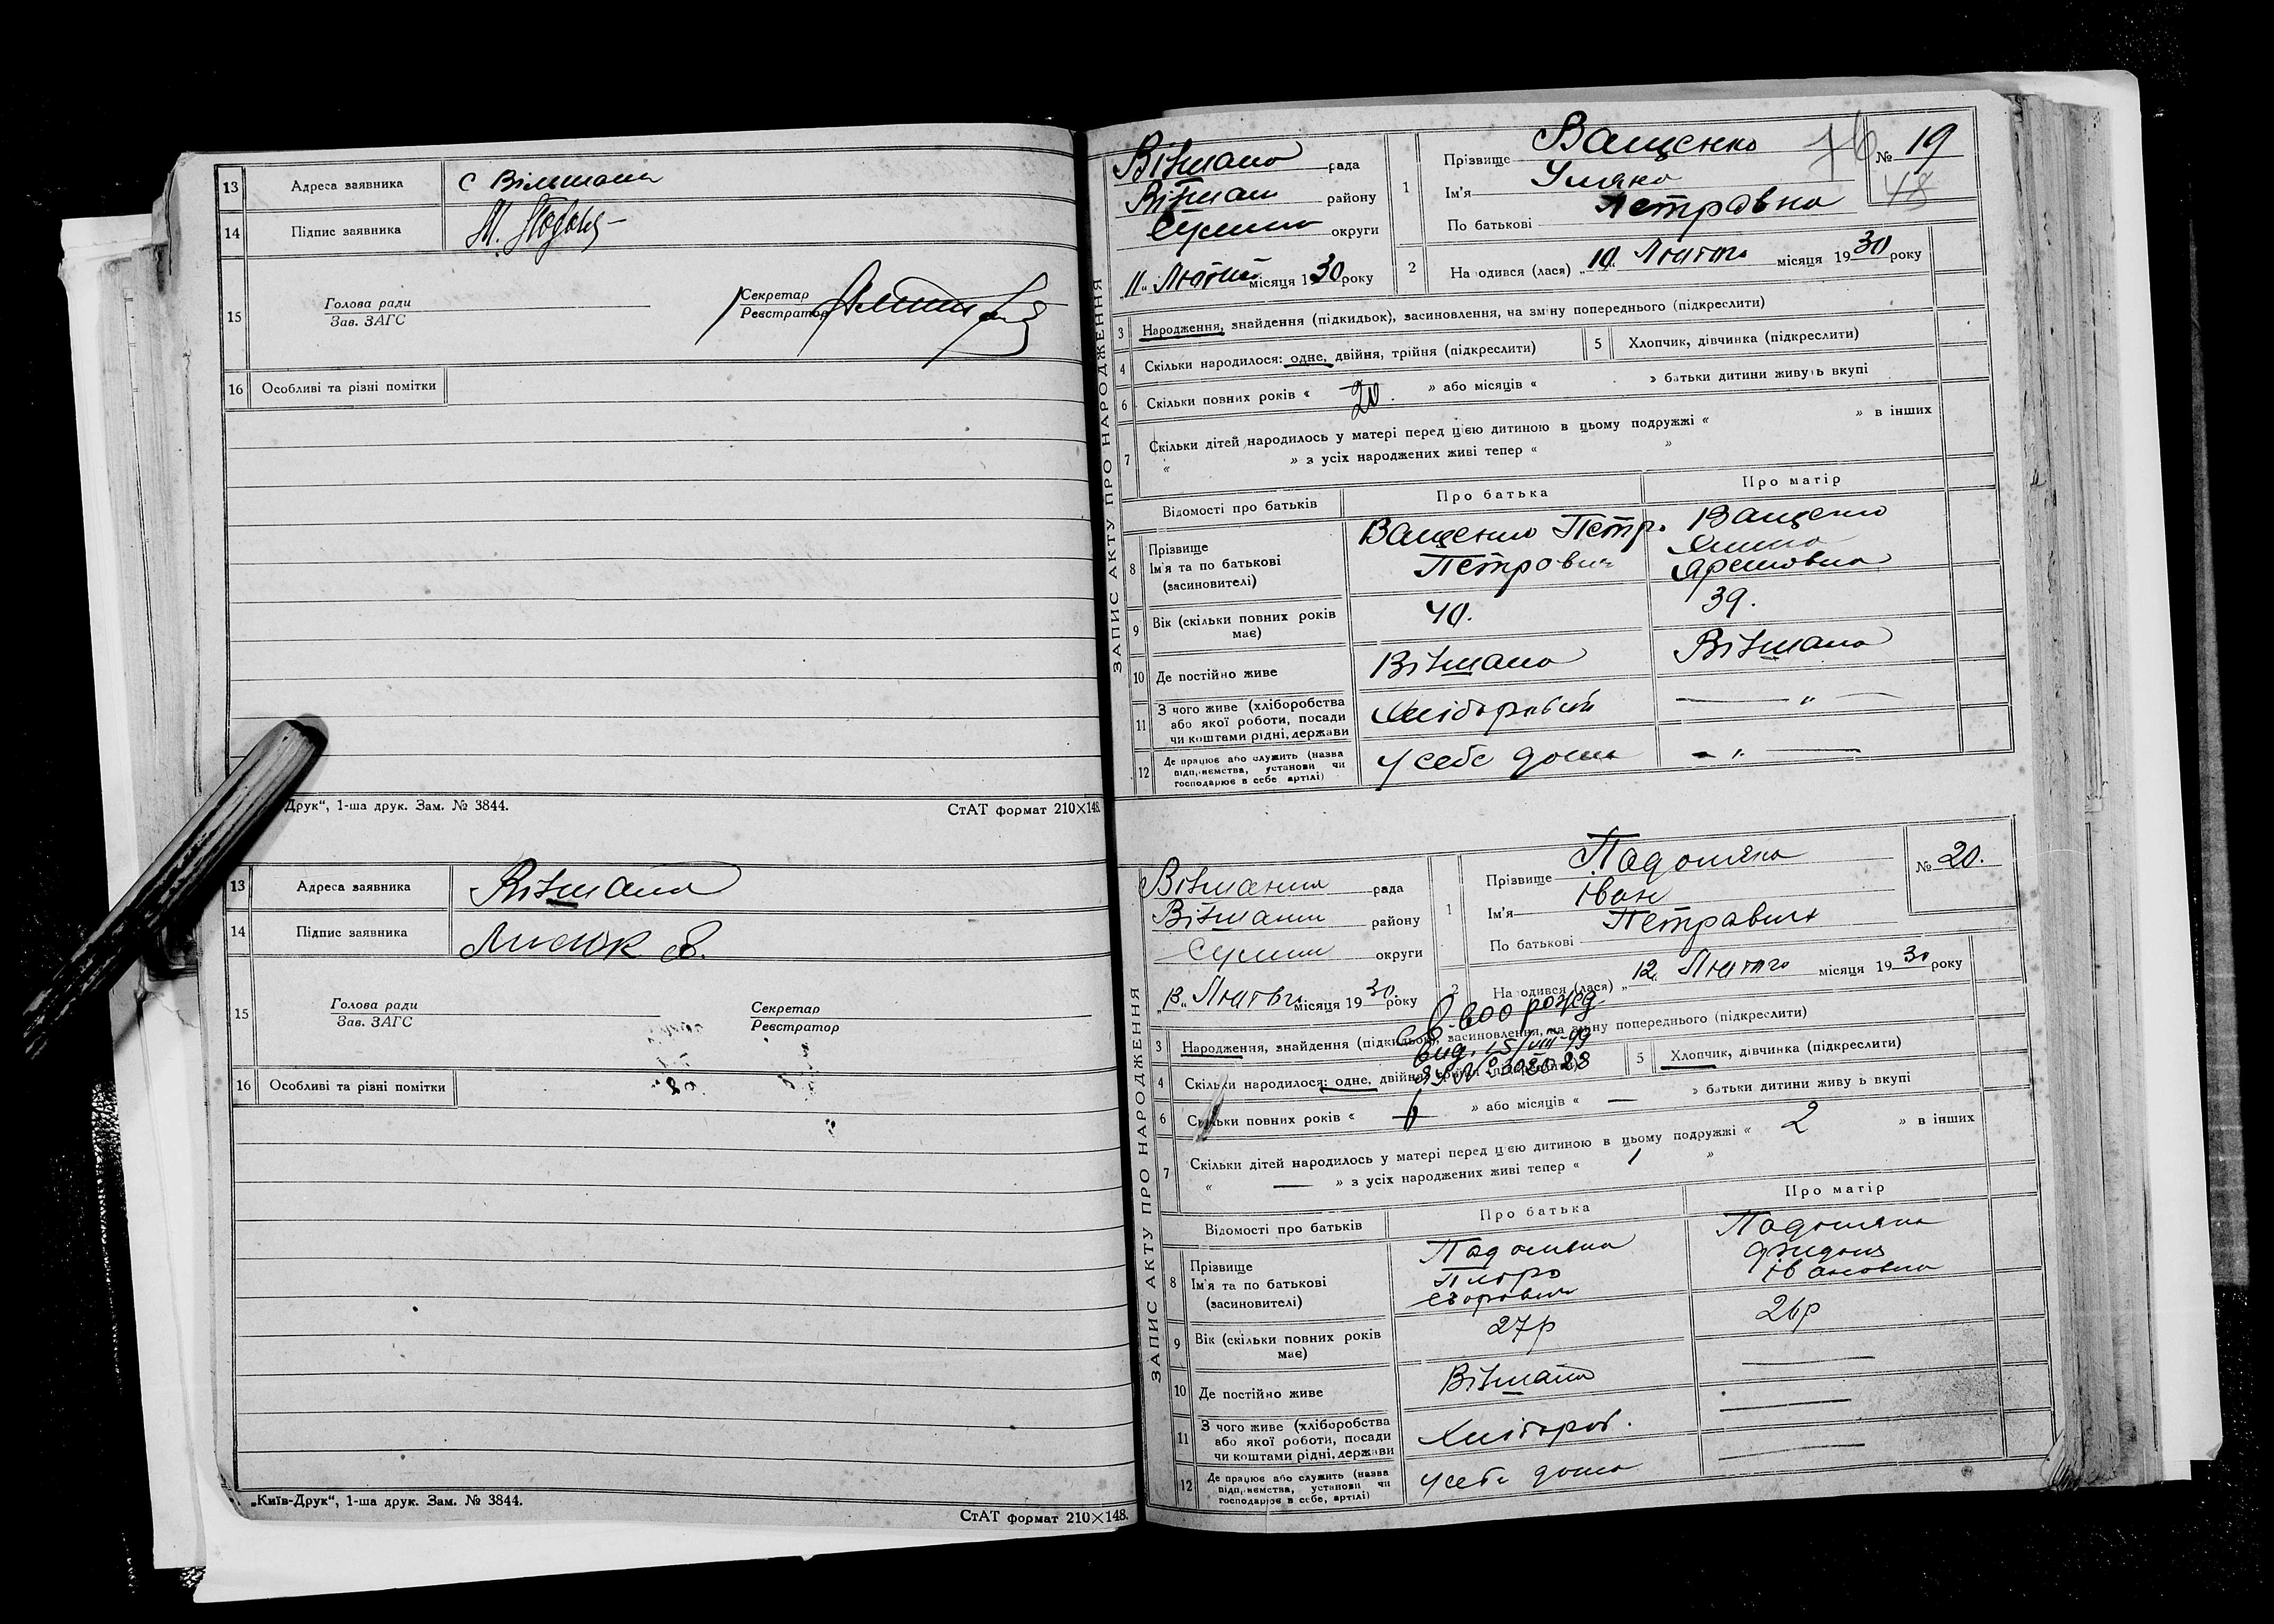 13 Адреса заявника с Вільшани
14 Підпис заявника М.
15 Голова ради
Зав. ЗАГС
Секретар
Реєстратор
16 Особливі та різні помітки
Друк", 1-ша друк. Зам. № 3844.
СтАТ формат 210×148.
13 Адреса заявника Вільшана
14 Підпис заявника
15 Голова ради
Зав. ЗАГС
Секретар
Реєстратор
16 Особливі та різні помітки
„Київ-Друк", 1-ша друк. Зам. № 3844.
СтАТ формат 210×148.
ЗАПИС АКТУ ПРО НАРОДЖЕННЯ
Вільшана рада
Вільшан району
Сумши округи
„11" Лютий місяця 1930 року
1 Прізвище Ващенко
Ім'я Уляна
По батькові Петравна
№ 19
48
76
2 На одився (лася) „10" Лютого місяця 1930 року
3 Народження, знайдення (підкидьок), засиновлення, на зміну попереднього (підкреслити)
4 Скільки народилося: одне, двійня, трійня (підкреслити)
5 Хлопчик, дівчинка (підкреслити)
6 Скільки повних років « 20. » або місяців « » батьки дитини живуть вкупі
7 Скільки дітей народилось у матері перед цією дитиною в цьому подружжі « » в інших
« » з усіх народжених живі тепер « »
Відомості про батьків
Про батька
Про матір
8 Прізвище
Ім'я та по батькові
(засиновителі)
Ващенко Петр.
Петрович
Ващенко
9 Вік (скільки повних років
має)
40.
39.
10 Де постійно живе Вільшана Вільшана
11 З чого живе (хліборобства
або якої роботи, посади
чи коштами рідні, держави
— " —
12 Де працює або служить (назва
підприємства, установи чи
господарює в себе, артілі)
у себе дома
— " —
ЗАПИС АКТУ ПРО НАРОДЖЕННЯ
Вільшанши рада
Вільшанши району
Сумши округи
„13" Лютого місяця 1930. року
1 Прізвище Падоляка
Ім'я Іван
По батькові Петравич
№ 20.
2 На одився (лася) „12" Лютого місяця 1930 року
3 Народження, знайдення (підкидьок), засиновлення, на зміну попереднього (підкреслити)
4 Скільки народилося: одне, двійня
5 Хлопчик, дівчинка (підкреслити)
С-воо рожд.
выд. 25/VIII-99
6 Скільки повних років « 6 » або місяців « — » батьки дитини живу ь вкупі
7 Скільки дітей народилось у матері перед цією дитиною в цьому подружжі « 2 » в інших
« — » з усіх народжених живі тепер « 1 »
Відомості про батьків
Про батька
Про матір
8 Прізвище
Ім'я та по батькові
(засиновителі)
Падоляка
Падоляка
Івановна
9 Вік (скільки повних років
має)
27р
26р
10 Де постійно живе Вільшана —
11 З чого живе (хліборобства
або якої роботи, посади
чи коштами рідні, держави
Хлібороб. —
12 Де працює або служить (назва
підприємства, установи чи
господарює в себе, артілі)
у себе дома —